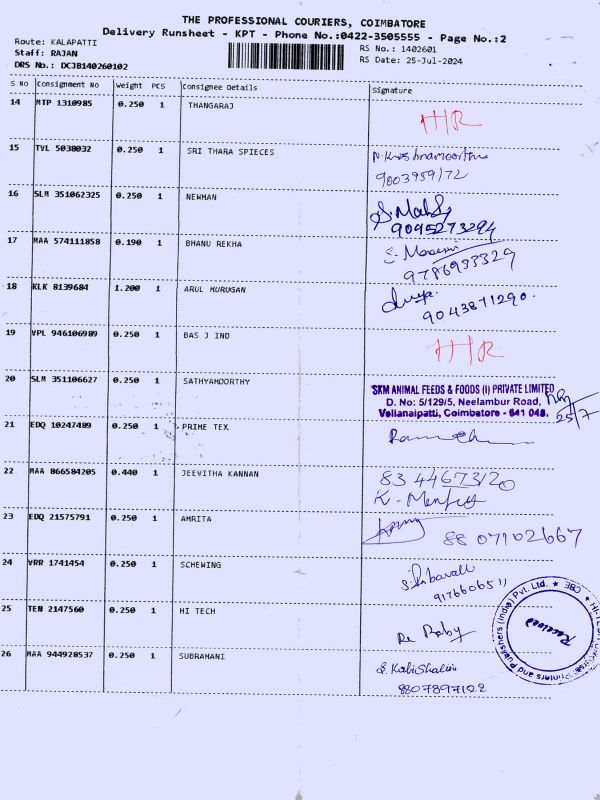 THE PROFESSIONAL COURIERS, COIMBATORE
Delivery Runsheet - KPT - Phone No.:0422-3505555 - Page No.:2
Route: KALAPATTI
RS No.: 1402601
Staff: RAJAN
RS Date: 25-Jul-2024
DRS No.: DCJB140260102
S NO Consignment No Weight PCS Consignee Details Signature
14 MTP 1310985 0.250 1 THANGARAJ H/R
15 TVL 5038032 0.250 1 SRI THARA SPIECES
9803959172
16 SLM 351062325 0.250 1 NEWHAN
9095273294
17 MAA 574111858 0.190 1 BHANU REKHA
9786933329
18 KLK 8139684 1.200 1 ARUL MURUGAN
9043871290.
19 VPL 946106989 0.250 1 BAS J IND H/R
20 SLM 351106627 0.250 1 SATHYAMOORTHY
SKM ANIMAL FEEDS & FOODS (I) PRIVATE LIMITED
D. No: 5/129/5, Neelambur Road,
Vellanaipatti, Coimbatore - 641 048.
25/7
21 EDQ 10247489 0.250 1 PRIME TEX
22 MAA 866584205 0.440 1 JEEVITHA KANNAN
83 44673120
23 EDQ 21575791 0.250 1 AMRITA
88 07102667
24 VRR 1741454 0.250 1 SCHEWING
9176606511
25 TEN 2147560 0.250 1 HI TECH
Received
Printers and Publishers (India) Pvt. Ltd. ★ CBE ★
26 MAA 944928537 0.250 1 SUBRAMANI
8807897122